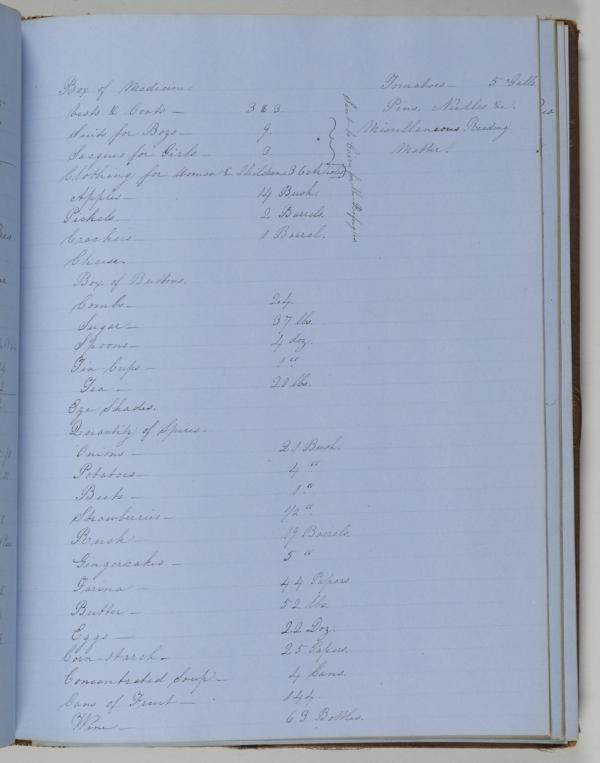 Box of Medicine.
Vests & Coats — 3 & 3.
Suits for Boys — 9.
Sacques for Girls — 3.
Clothing for Women & Children.
Apples — 14 Bush.
Pickels — 2 Barrels.
Crackers — 1 Barrel.
Cheese.
Box of Buttons.
Combs — 24.
Sugar — 37 lbs.
Spoons — 4 doz.
Tin Cups — 1 "
Tea — 20 lbs.
Eye Shades.
Quantity of Spices —
Onions — 21 Bush.
Potatoes — 4 "
Beets — 1 "
Strawberries — 1/2 "
Rusk — 19 Barrels.
Gingercakes — 5 "
Farina — 44 Papers
Butter — 52 lbs.
Eggs — 22 Doz.
Corn-starch — 25 Papers.
Concentrated Soup — 4 Cans.
Cans of Fruit — 144.
Wine — 69 Bottles.
Sent to for the Refugees
Tomatoes — 5 Galls.
Pins, Needles &c.
Miscellaneous Reading
Matter.